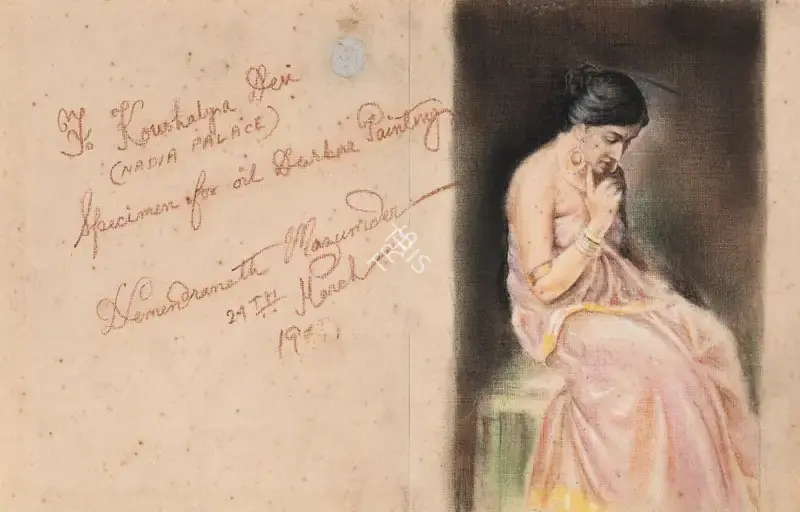 To Koushalya Devi
(NADIA PALACE)
Specimen for oil Painting
Hemendranath Mazumder
24TH March